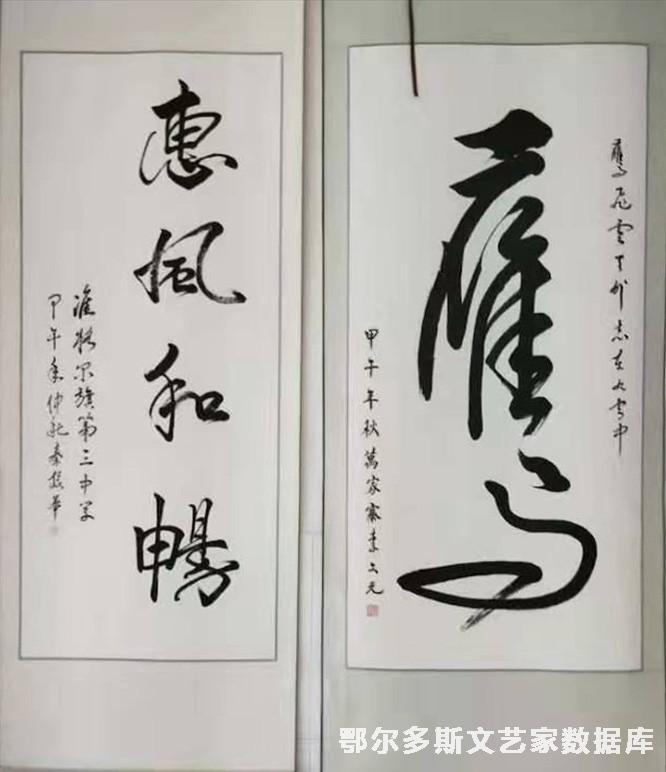 惠風和暢
准格尔旗第三中学
甲午年仲秋秦華
鷹飛雲天外志在九霄中
鷹
甲午年秋萬家寨李文元
鄂尔多斯文艺家数据库